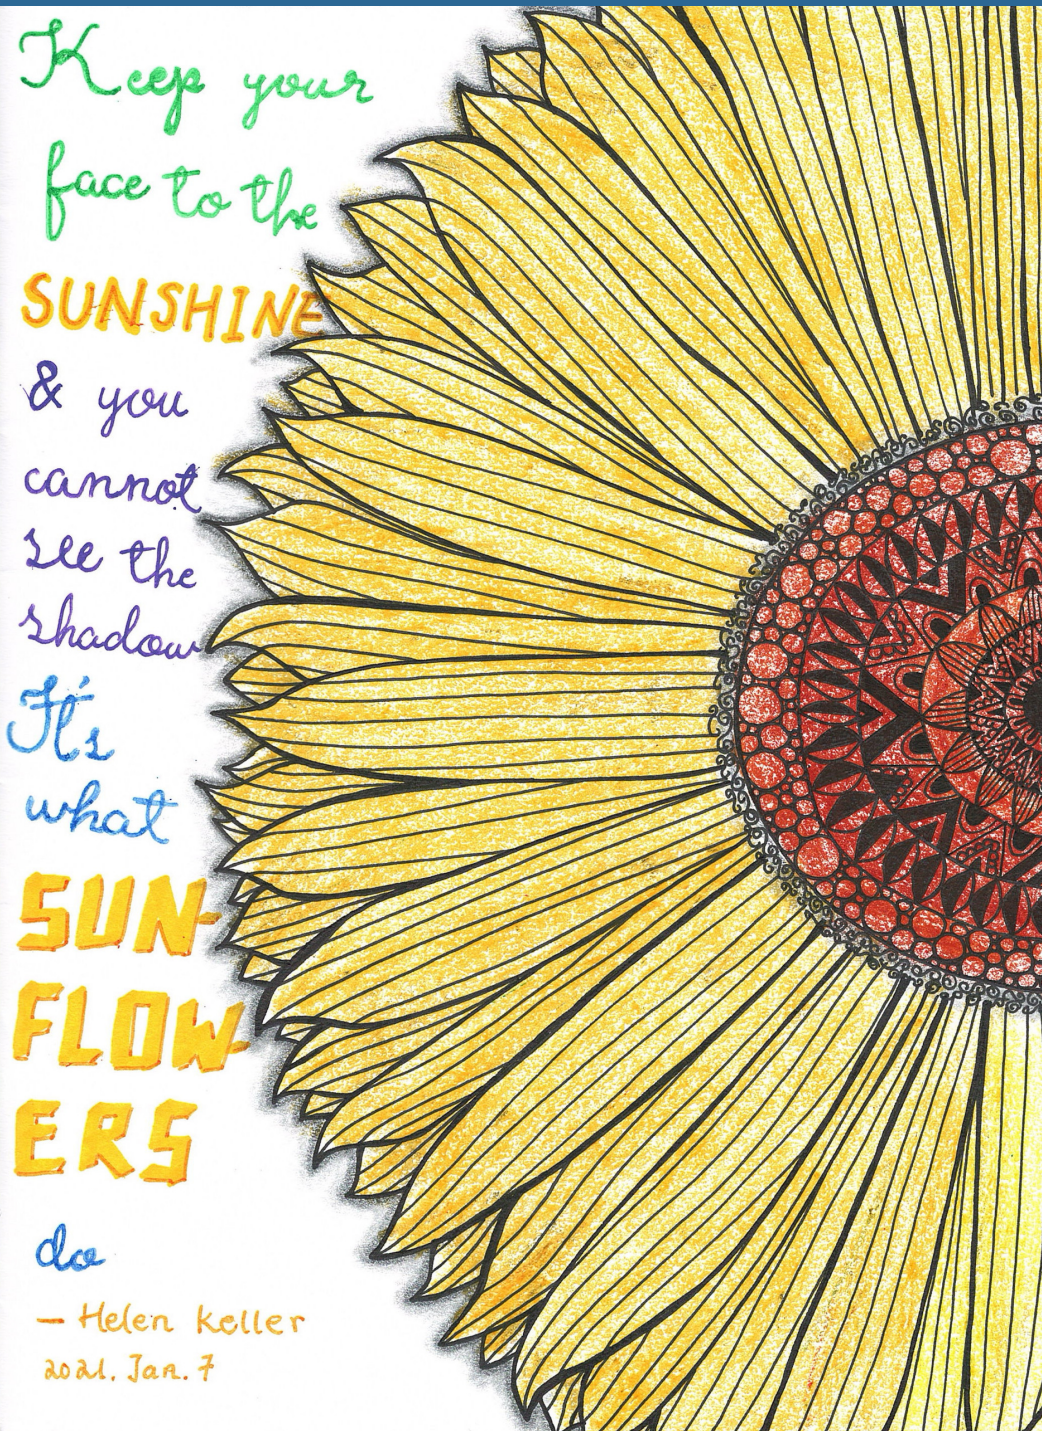 Keep your
face to the
SUNSHINE
& you
cannot
see the
shadow
It's
what
SUN-
FLOW-
ERS
do
— Helen Keller
2021. Jan. 7